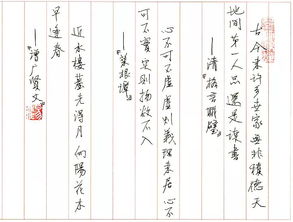 古今来许多世家無非積德天
地间第一人品還是读書
——清《格言联璧》
心不可不虚虚则義理来居心不
可不實实则物欲不入
——《菜根譚》
近水樓臺先得月向陽花木
早逢春
——《增广贤文》